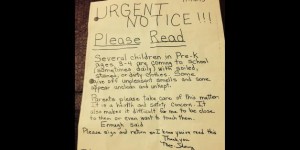 URGENT
NOTICE!!!
Please Read
Several children in Pre-K
Ages 3-4 are coming to school
(sometimes daily) with soiled,
stained, or dirty clothes. Some
give off unpleasant smells and some
appear unclean and unkept.
Parents please take care of this matter
It is a health and safety concern. It
also makes it difficult for me to be close
to them or even want to touch them.
Enough said
Please sign and return so I know you've read this
Thank you